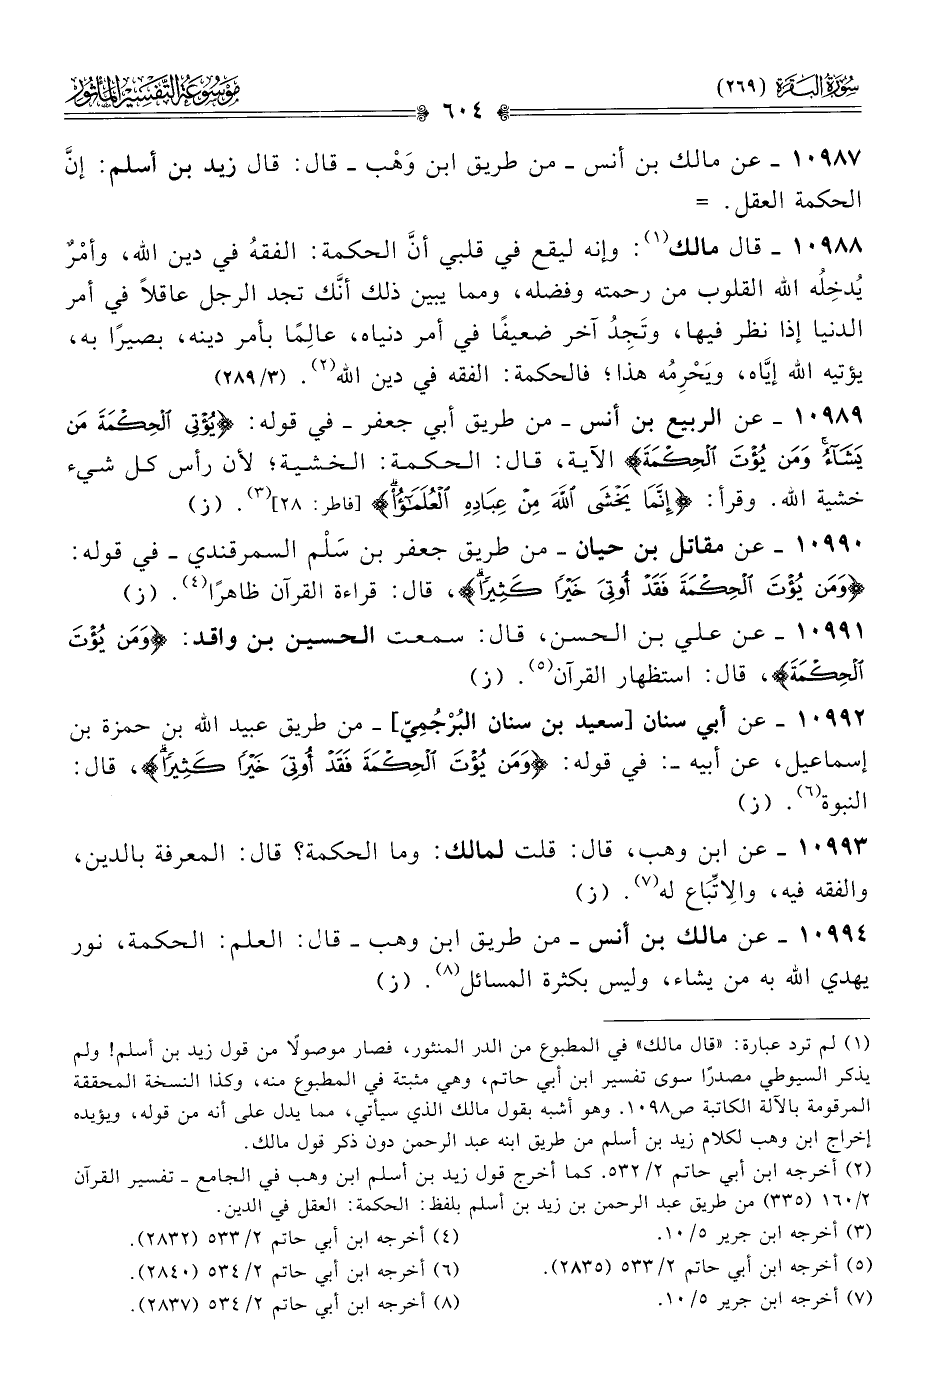 سُورَةُ البَقَرَة (٢٦٩)
٦٠٤
مَوْسُوعَةُ التَّفْسِيرِ المَأْثُورِ
١٠٩٨٧ ـ عن مالك بن أنس ـ من طريق ابن وَهْب ـ قال: قال زيد بن أسلم: إنَّ
الحكمة العقل. =
١٠٩٨٨ ـ قال مالك(١): وإنه ليقع في قلبي أنَّ الحكمة: الفقهُ في دين الله، وأمْرٌ
يُدخِلُه الله القلوب من رحمته وفضله، ومما يبين ذلك أنَّك تجد الرجل عاقلاً في أمر
الدنيا إذا نظر فيها، وتَجِدُ آخر ضعيفًا في أمر دنياه، عالِمًا بأمر دينه، بصيرًا به،
يؤتيه الله إيَّاه، ويَحْرِمُه هذا؛ فالحكمة: الفقه في دين الله(٢). (٢٨٩/٣)
١٠٩٨٩ ـ عن الربيع بن أنس ـ من طريق أبي جعفر ـ في قوله: ﴿يُؤْتِي ٱلْحِكْمَةَ مَن
يَشَآءُۚ وَمَن يُؤْتَ ٱلْحِكْمَةَ﴾ الآية، قال: الحكمة: الخشية؛ لأن رأس كل شيء
خشية الله. وقرأ: ﴿إِنَّمَا يَخْشَى ٱللَّهَ مِنْ عِبَادِهِ ٱلْعُلَمَـٰٓؤُا۟ۗ﴾ [فاطر: ٢٨](٣). (ز)
١٠٩٩٠ ـ عن مقاتل بن حيان ـ من طريق جعفر بن سَلْم السمرقندي ـ في قوله:
﴿وَمَن يُؤْتَ ٱلْحِكْمَةَ فَقَدْ أُوتِىَ خَيْرًا كَثِيرًاۗ﴾، قال: قراءة القرآن ظاهرًا(٤). (ز)
١٠٩٩١ ـ عن علي بن الحسن، قال: سمعت الحسين بن واقد: ﴿وَمَن يُؤْتَ
ٱلْحِكْمَةَ﴾، قال: استظهار القرآن(٥). (ز)
١٠٩٩٢ ـ عن أبي سنان [سعيد بن سنان البُرْجُمِيّ] ـ من طريق عبيد الله بن حمزة بن
إسماعيل، عن أبيه ـ: في قوله: ﴿وَمَن يُؤْتَ ٱلْحِكْمَةَ فَقَدْ أُوتِىَ خَيْرًا كَثِيرًاۗ﴾، قال:
النبوة(٦). (ز)
١٠٩٩٣ ـ عن ابن وهب، قال: قلت لمالك: وما الحكمة؟ قال: المعرفة بالدين،
والفقه فيه، والاِتِّبَاع له(٧). (ز)
١٠٩٩٤ ـ عن مالك بن أنس ـ من طريق ابن وهب ـ قال: العلم: الحكمة، نور
يهدي الله به من يشاء، وليس بكثرة المسائل(٨). (ز)
(١) لم ترد عبارة: «قال مالك» في المطبوع من الدر المنثور، فصار موصولًا من قول زيد بن أسلم! ولم
يذكر السيوطي مصدرًا سوى تفسير ابن أبي حاتم، وهي مثبتة في المطبوع منه، وكذا النسخة المحققة
المرقومة بالآلة الكاتبة ص١٠٩٨. وهو أشبه بقول مالك الذي سيأتي، مما يدل على أنه من قوله، ويؤيده
إخراج ابن وهب لكلام زيد بن أسلم من طريق ابنه عبد الرحمن دون ذكر قول مالك.
(٢) أخرجه ابن أبي حاتم ٥٣٢/٢. كما أخرج قول زيد بن أسلم ابن وهب في الجامع ـ تفسير القرآن
١٦٠/٢ (٣٣٥) من طريق عبد الرحمن بن زيد بن أسلم بلفظ: الحكمة: العقل في الدين.
(٣) أخرجه ابن جرير ١٠/٥. (٤) أخرجه ابن أبي حاتم ٥٣٣/٢ (٢٨٣٢).
(٥) أخرجه ابن أبي حاتم ٥٣٣/٢ (٢٨٣٥). (٦) أخرجه ابن أبي حاتم ٥٣٤/٢ (٢٨٤٠).
(٧) أخرجه ابن جرير ١٠/٥. (٨) أخرجه ابن أبي حاتم ٥٣٤/٢ (٢٨٣٧).